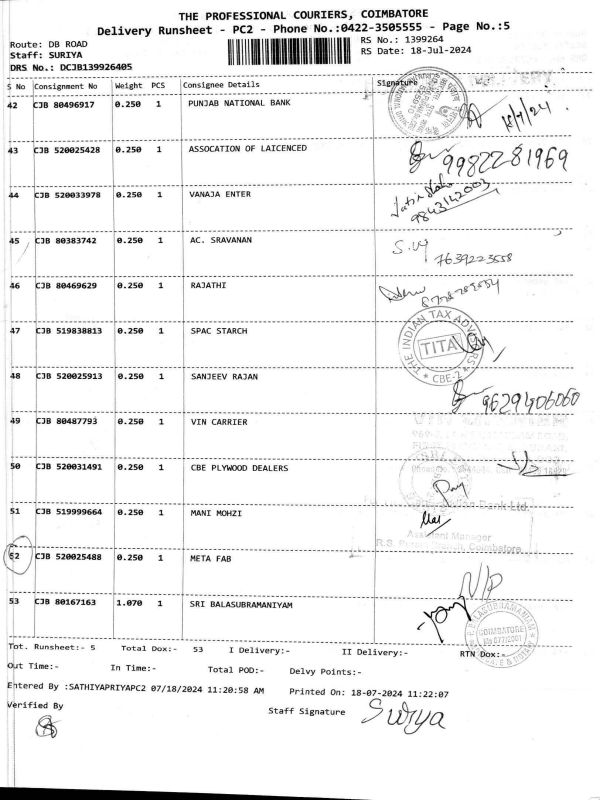 THE PROFESSIONAL COURIERS, COIMBATORE
Delivery Runsheet - PC2 - Phone No.:0422-3505555 - Page No.:5
Route: DB ROAD
RS No.: 1399264
Staff: SURIYA
RS Date: 18-Jul-2024
DRS No.: DCJB139926405
S No Consignment No Weight PCS Consignee Details Signature
42 CJB 80496917 0.250 1 PUNJAB NATIONAL BANK 18/7/24
43 CJB 520025428 0.250 1 ASSOCATION OF LAICENCED 9982281969
44 CJB 520033978 0.250 1 VANAJA ENTER 9843142003
45 CJB 80383742 0.250 1 AC. SRAVANAN 7639223558
46 CJB 80469629 0.250 1 RAJATHI
47 CJB 519838813 0.250 1 SPAC STARCH
THE INDIAN TAX ADV
TITA
CBE-2
48 CJB 520025913 0.250 1 SANJEEV RAJAN 9629406060
49 CJB 80487793 0.250 1 VIN CARRIER
50 CJB 520031491 0.250 1 CBE PLYWOOD DEALERS
51 CJB 519999664 0.250 1 MANI MOHZI
Bank Ltd.
Assistant Manager
Coimbatore
52 CJB 520025488 0.250 1 META FAB N/P
53 CJB 80167163 1.070 1 SRI BALASUBRAMANIYAM
COIMBATORE
Tot. Runsheet:- 5 Total Dox:- 53 I Delivery:- II Delivery:- RTN Dox:-
Out Time:- In Time:- Total POD:- Delvy Points:-
Entered By :SATHIYAPRIYAPC2 07/18/2024 11:20:58 AM Printed On: 18-07-2024 11:22:07
Verified By Staff Signature Suriya